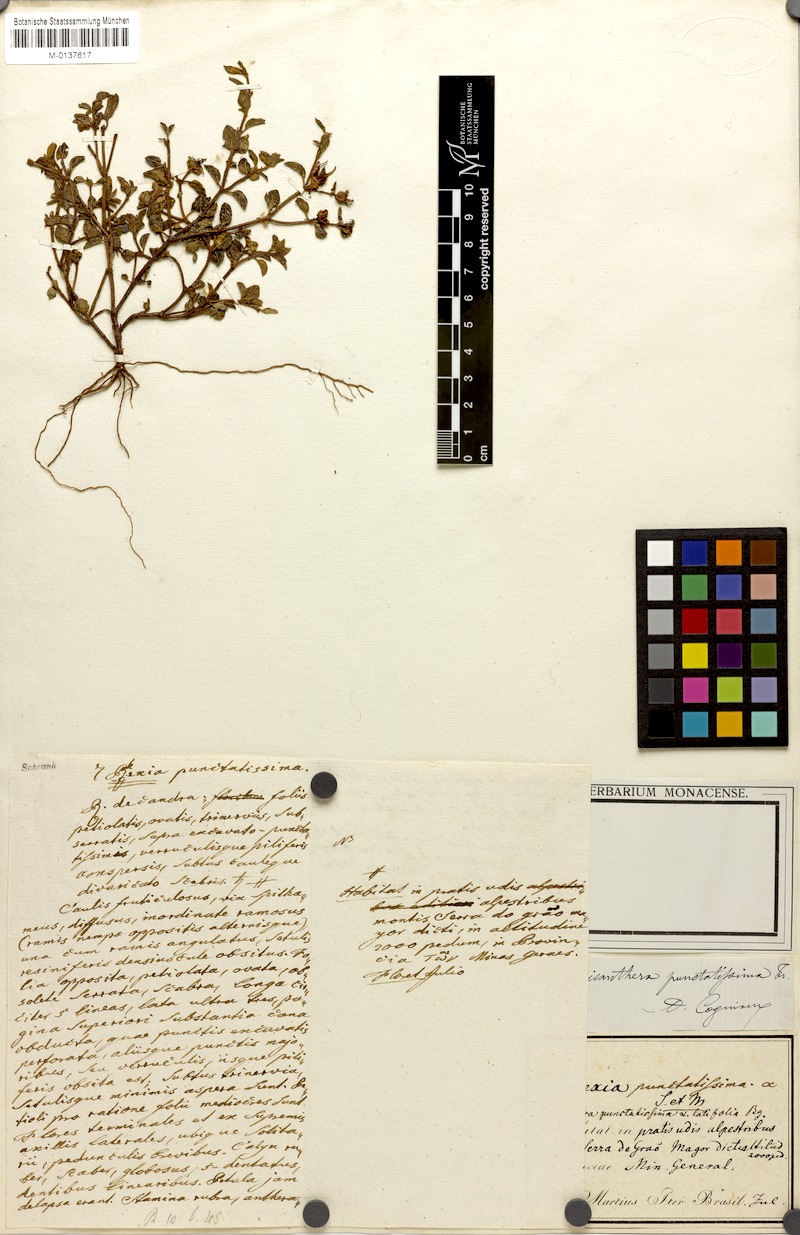 Botanische Staatssammlung München
M-0137617
BOTANISCHE
STAATSSAMMLUNG
MÜNCHEN
copyright reserved
0 1 2 3 4 5 6 7 8 9 10
cm
Schrank
7 Rexia punctatissima.
R. decandra: foliis
petiolatis, ovatis, trinerviis, sub,
serratis, supra excavato-puncta,
tissimis, verruculisque piliferis
conspersis, subtus cauleque
divaricato scabris. ♄
Caulis fruticulosus, vix spitha,
meus, diffusus, inordinate ramosus
(ramis nempe oppositis alternisque)
una cum ramis angulatus, setulis
resiniferis densiuscule obsitus. Fo,
lia opposita, petiolata, ovata, ob,
solete serrata, scabra, longa cir,
citer 5 lineas, lata ultra tres, pa,
gina superiori substantia cana
obducta, quae punctis excavatis
perforata, aliisque punctis majo,
ribus, seu verruculis, iisque pili,
feris obsita est; subtus trinervia,
setulisque minimis aspera sunt. Pe,
tioli pro ratione folii mediocres sunt.
Flores terminales et ex supremis
axillis laterales, ubique solita,
rii, pedunculis brevibus. Calyx ru,
ber, scaber, globosus, 5-dentatus,
dentibus linearibus. Petala jam
delapsa erant. Stamina rubra, anthera,
Habitat in pratis udis
alpestribus
montis Serra do grão ma,
yor dicti, in altitudine
2000 pedum, in Provin,
cia Minas Geraes.
Floret Julio
ERBARIUM MONACENSE.
isanthera punctatissima Tr.
D. Cogniaux
exia punctatissima. α
S. et M
ra punctatissima α. latifolia Bg.
itat in pratis udis alpestribus
Serra de Graõ Magor dictis Altitud
2000 ped.
ciae Min. General.
Martius Iter Brasil. Jul.